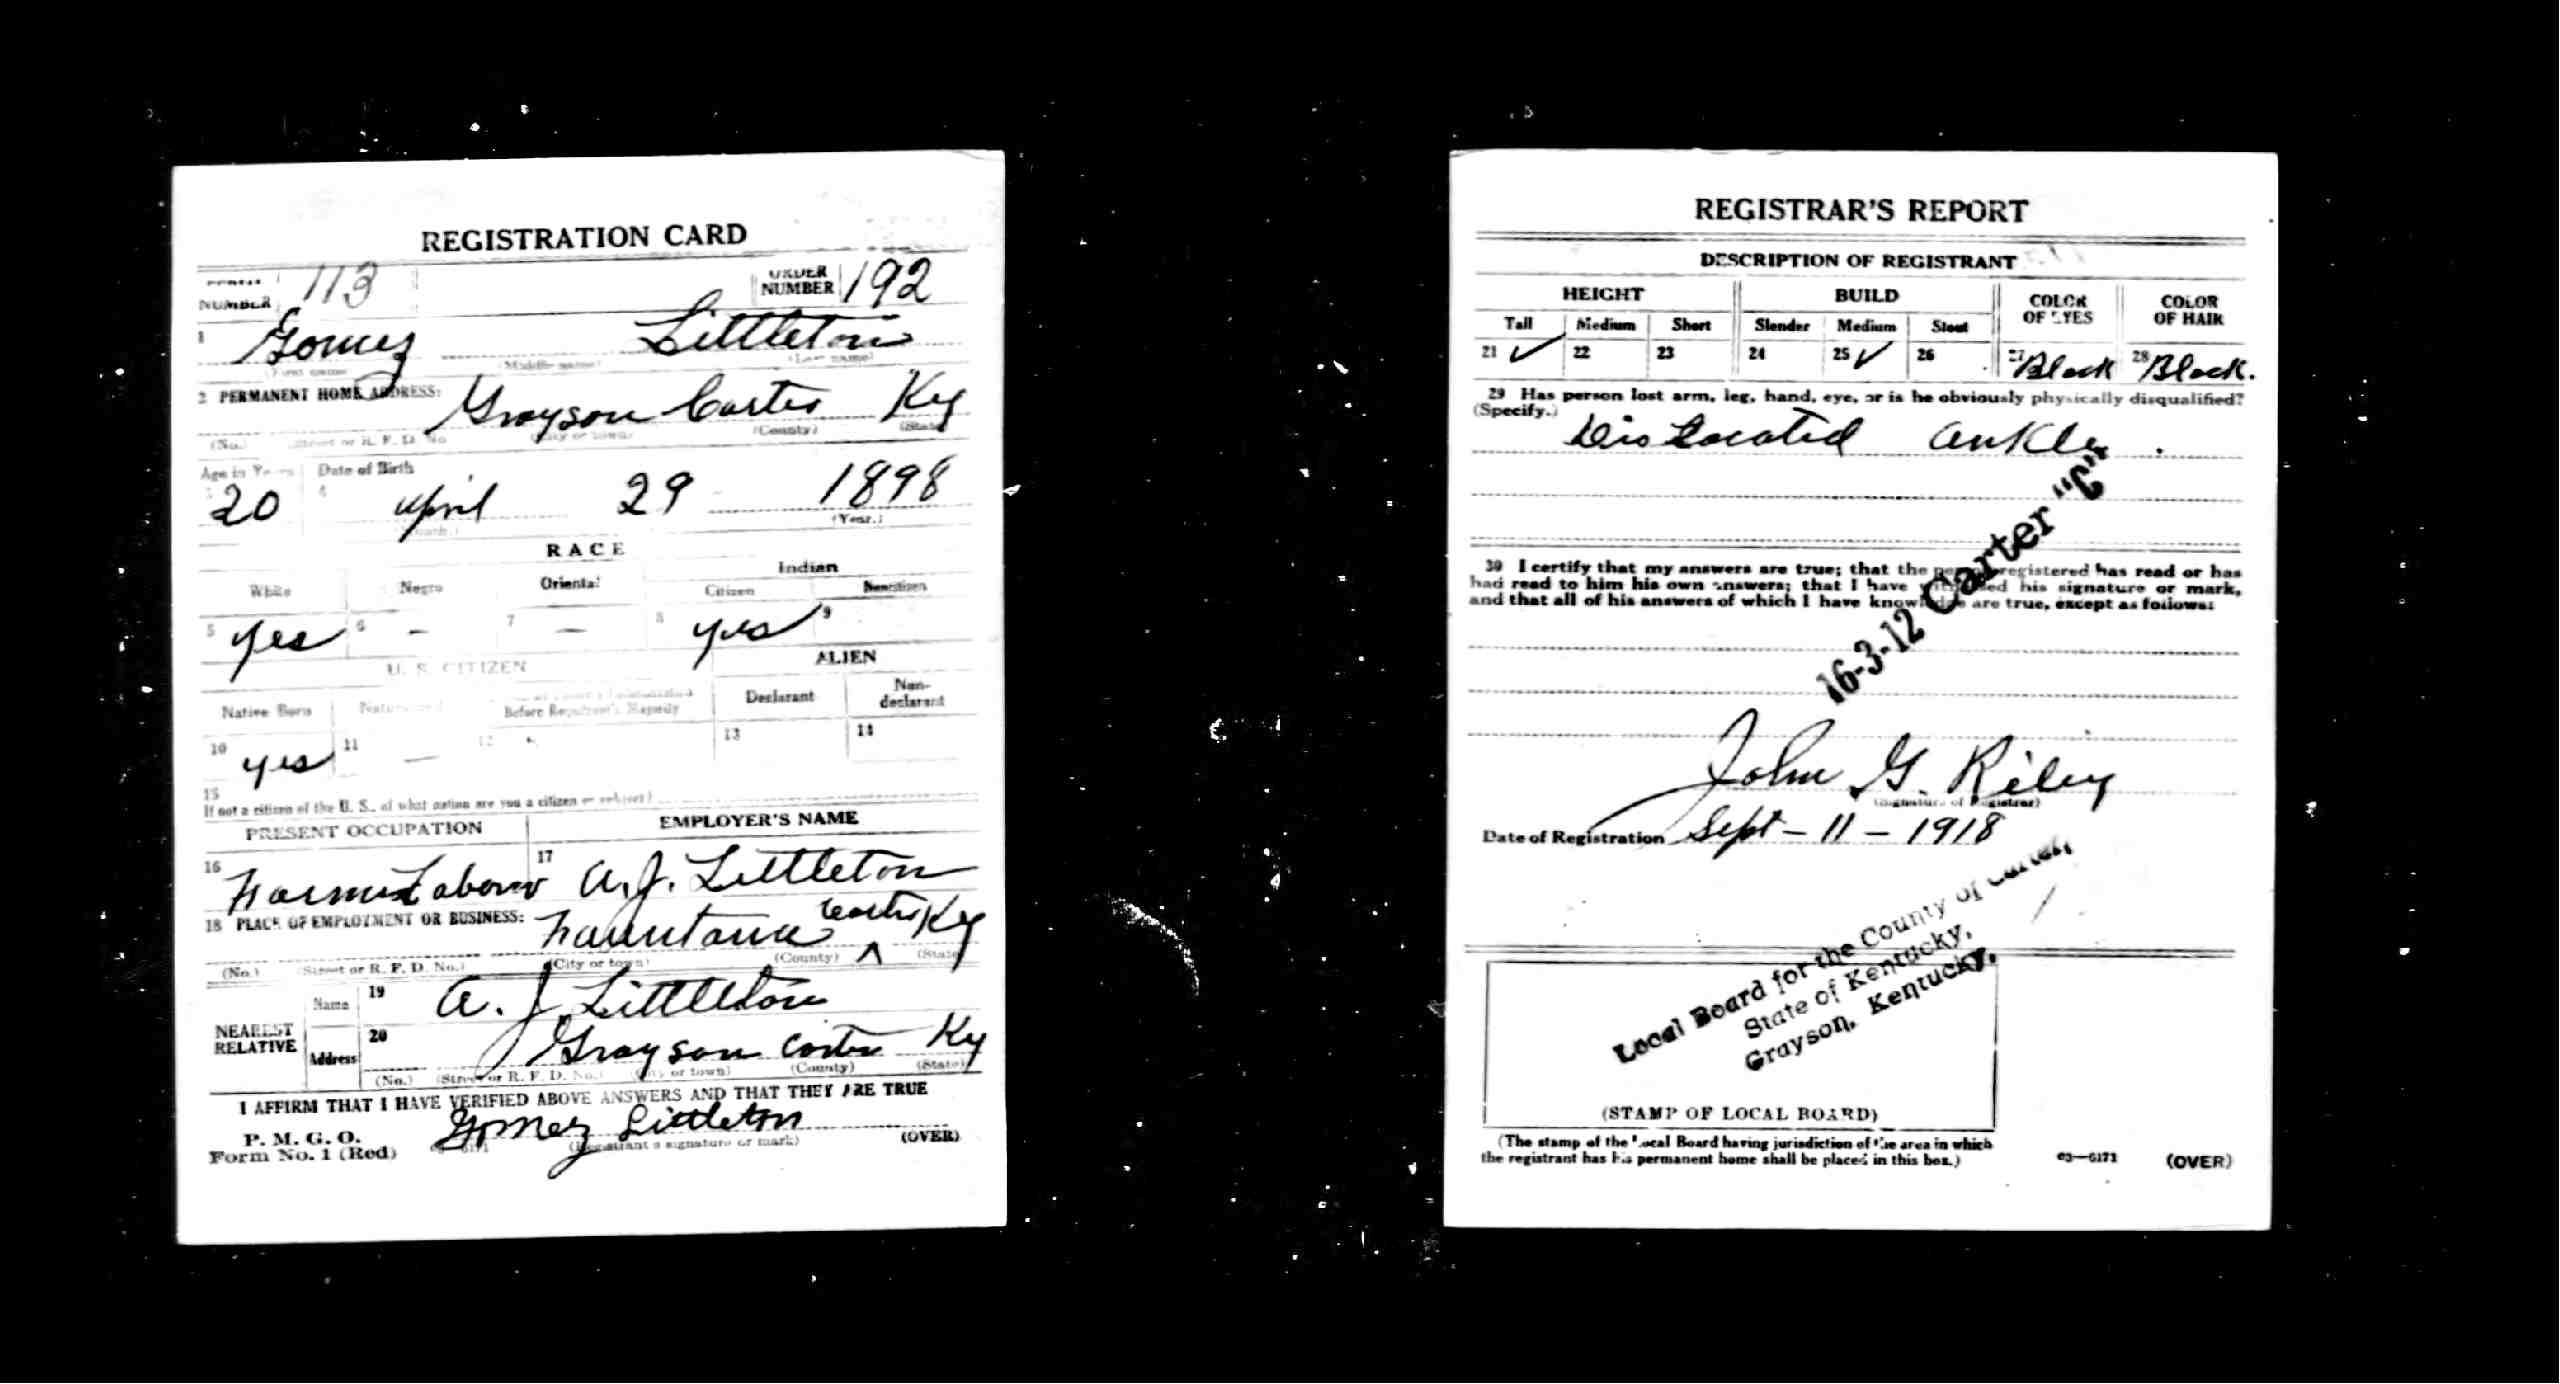 REGISTRATION CARD
NUMBER 113 ORDER NUMBER 192
1 Gomez Littleton
(First name) (Middle name) (Last name)
2 PERMANENT HOME ADDRESS: Grayson Carter Ky
(No.) (Street or R. F. D. No. (City or town) (County) (State)
Age in Years Date of Birth
3 20 4 April 29 1898
(Month.) (Year.)
RACE
White Negro Oriental Indian
Citizen Noncitizen
5 yes 6 – 7 – 8 yes 9
U. S. CITIZEN ALIEN
Native Born Naturalized Before Registrant's Majority Declarant Non-declarant
10 yes 11 – 12 13 14
15
If not a citizen of the U. S., of what nation are you a citizen or subject?
PRESENT OCCUPATION EMPLOYER'S NAME
16 17 A. J. Littleton
18 PLACE OF EMPLOYMENT OR BUSINESS: Carter Ky
(No.) (Street or R. F. D. No.) (City or town) (County) ʌ (State)
NEAREST RELATIVE
Name 19 A. J. Littleton
Address 20 Grayson Carter Ky
(No.) (Street or R. F. D. No.) (City or town) (County) (State)
I AFFIRM THAT I HAVE VERIFIED ABOVE ANSWERS AND THAT THEY ARE TRUE
P. M. G. O.
Form No. 1 (Red) Gomez Littleton
(Registrant's signature or mark) (OVER)
REGISTRAR'S REPORT
DESCRIPTION OF REGISTRANT
HEIGHT BUILD COLOR OF EYES COLOR OF HAIR
Tall Medium Short Slender Medium Stout
21 ✓ 22 23 24 25 ✓ 26 27 Black 28 Black.
29 Has person lost arm, leg, hand, eye, or is he obviously physically disqualified?
(Specify.) Dis Located ankle .
30 I certify that my answers are true; that the person registered has read or has
had read to him his own answers; that I have witnessed his signature or mark,
and that all of his answers of which I have knowledge are true, except as follows:
16-3-12 Carter "C"
John G. Riley
(Signature of Registrar)
Date of Registration Sept – 11 – 1918
Local Board for the County of Carter,
State of Kentucky,
Grayson, Kentucky.
(STAMP OF LOCAL BOARD)
(The stamp of the Local Board having jurisdiction of the area in which
the registrant has his permanent home shall be placed in this box.)
03—6171 (OVER)